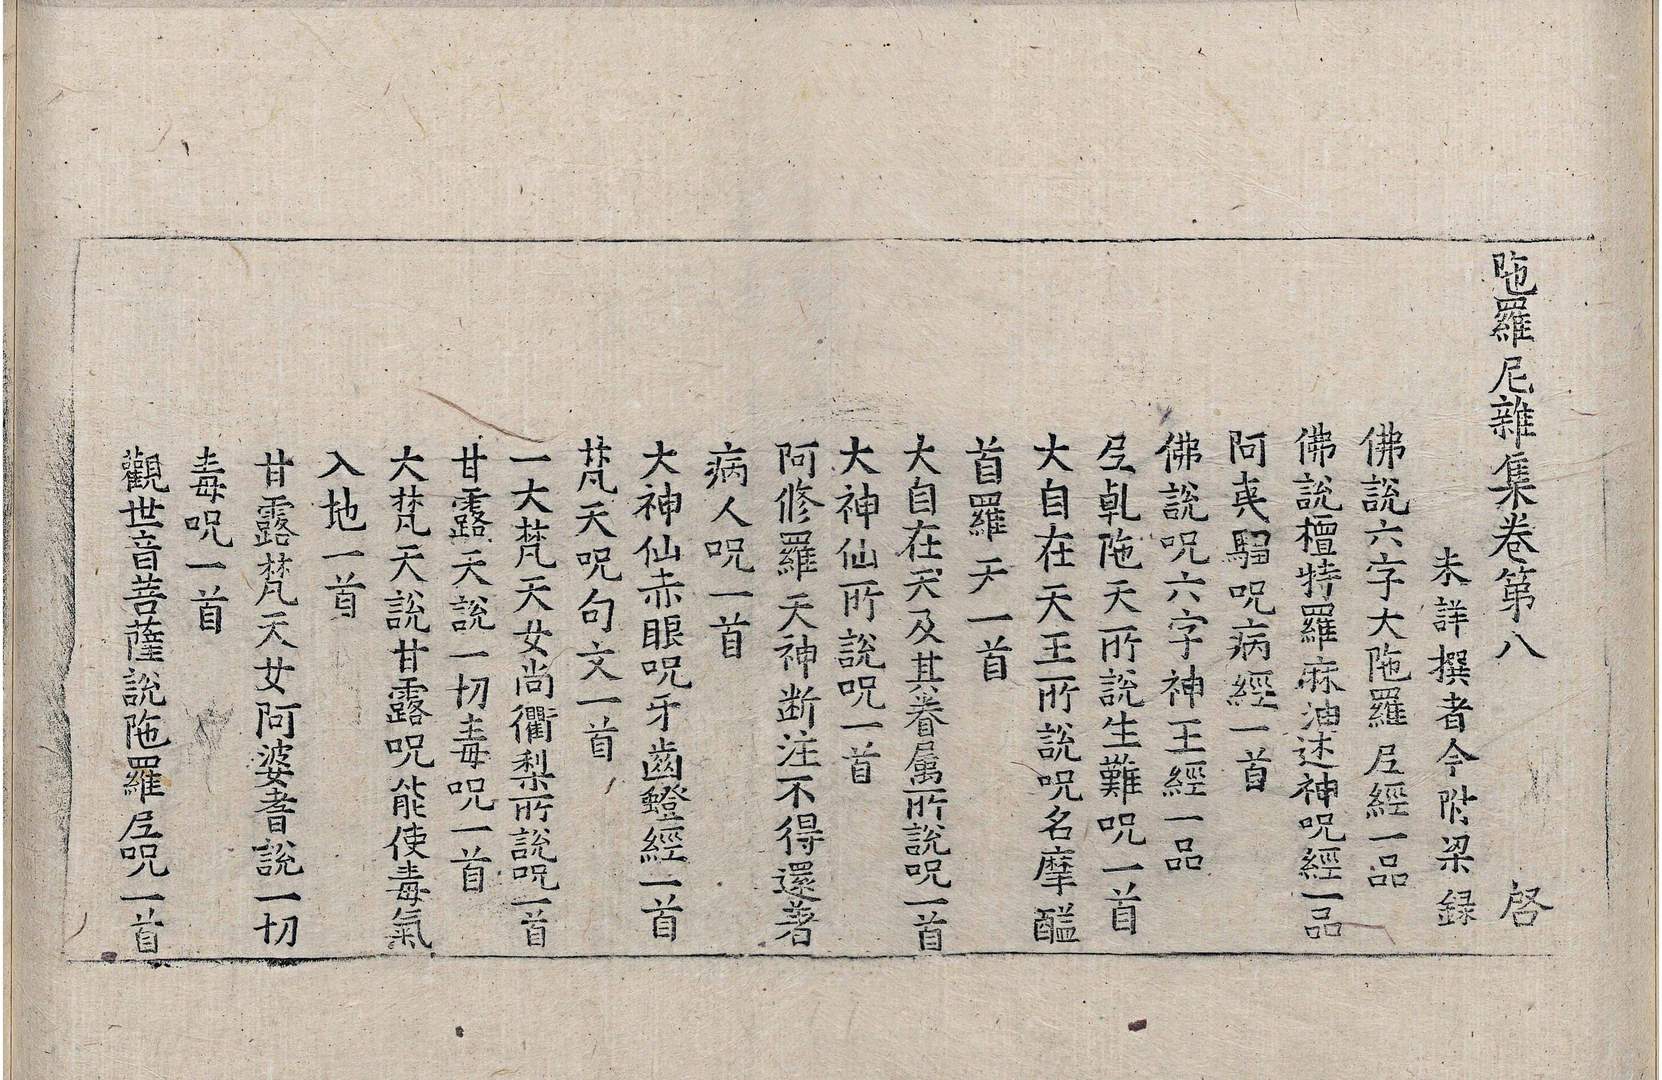 陁羅尼雜集卷第八 啓
未詳撰者今附梁録
佛說六字大陁羅尼經一品
佛說檀特羅麻油述神呪經一品
阿㝹騶呪病經一首
佛說呪六字神王經一品
尼乹陁天所說生難呪一首
大自在天王所說呪名摩醯
首羅天一首
大自在天及其眷属所說呪一首
大神仙所說呪一首
阿修羅天神断注不得還著
病人呪一首
大神仙赤眼呪牙齒蹬經一首
梵天呪句文一首
一大梵天女尚衢梨所說呪一首
甘露天說一切毒呪一首
大梵天說甘露呪能使毒氣
入地一首
甘露梵天女阿婆耆說一切
毒呪一首
觀世音菩薩說陁羅尼呪一首